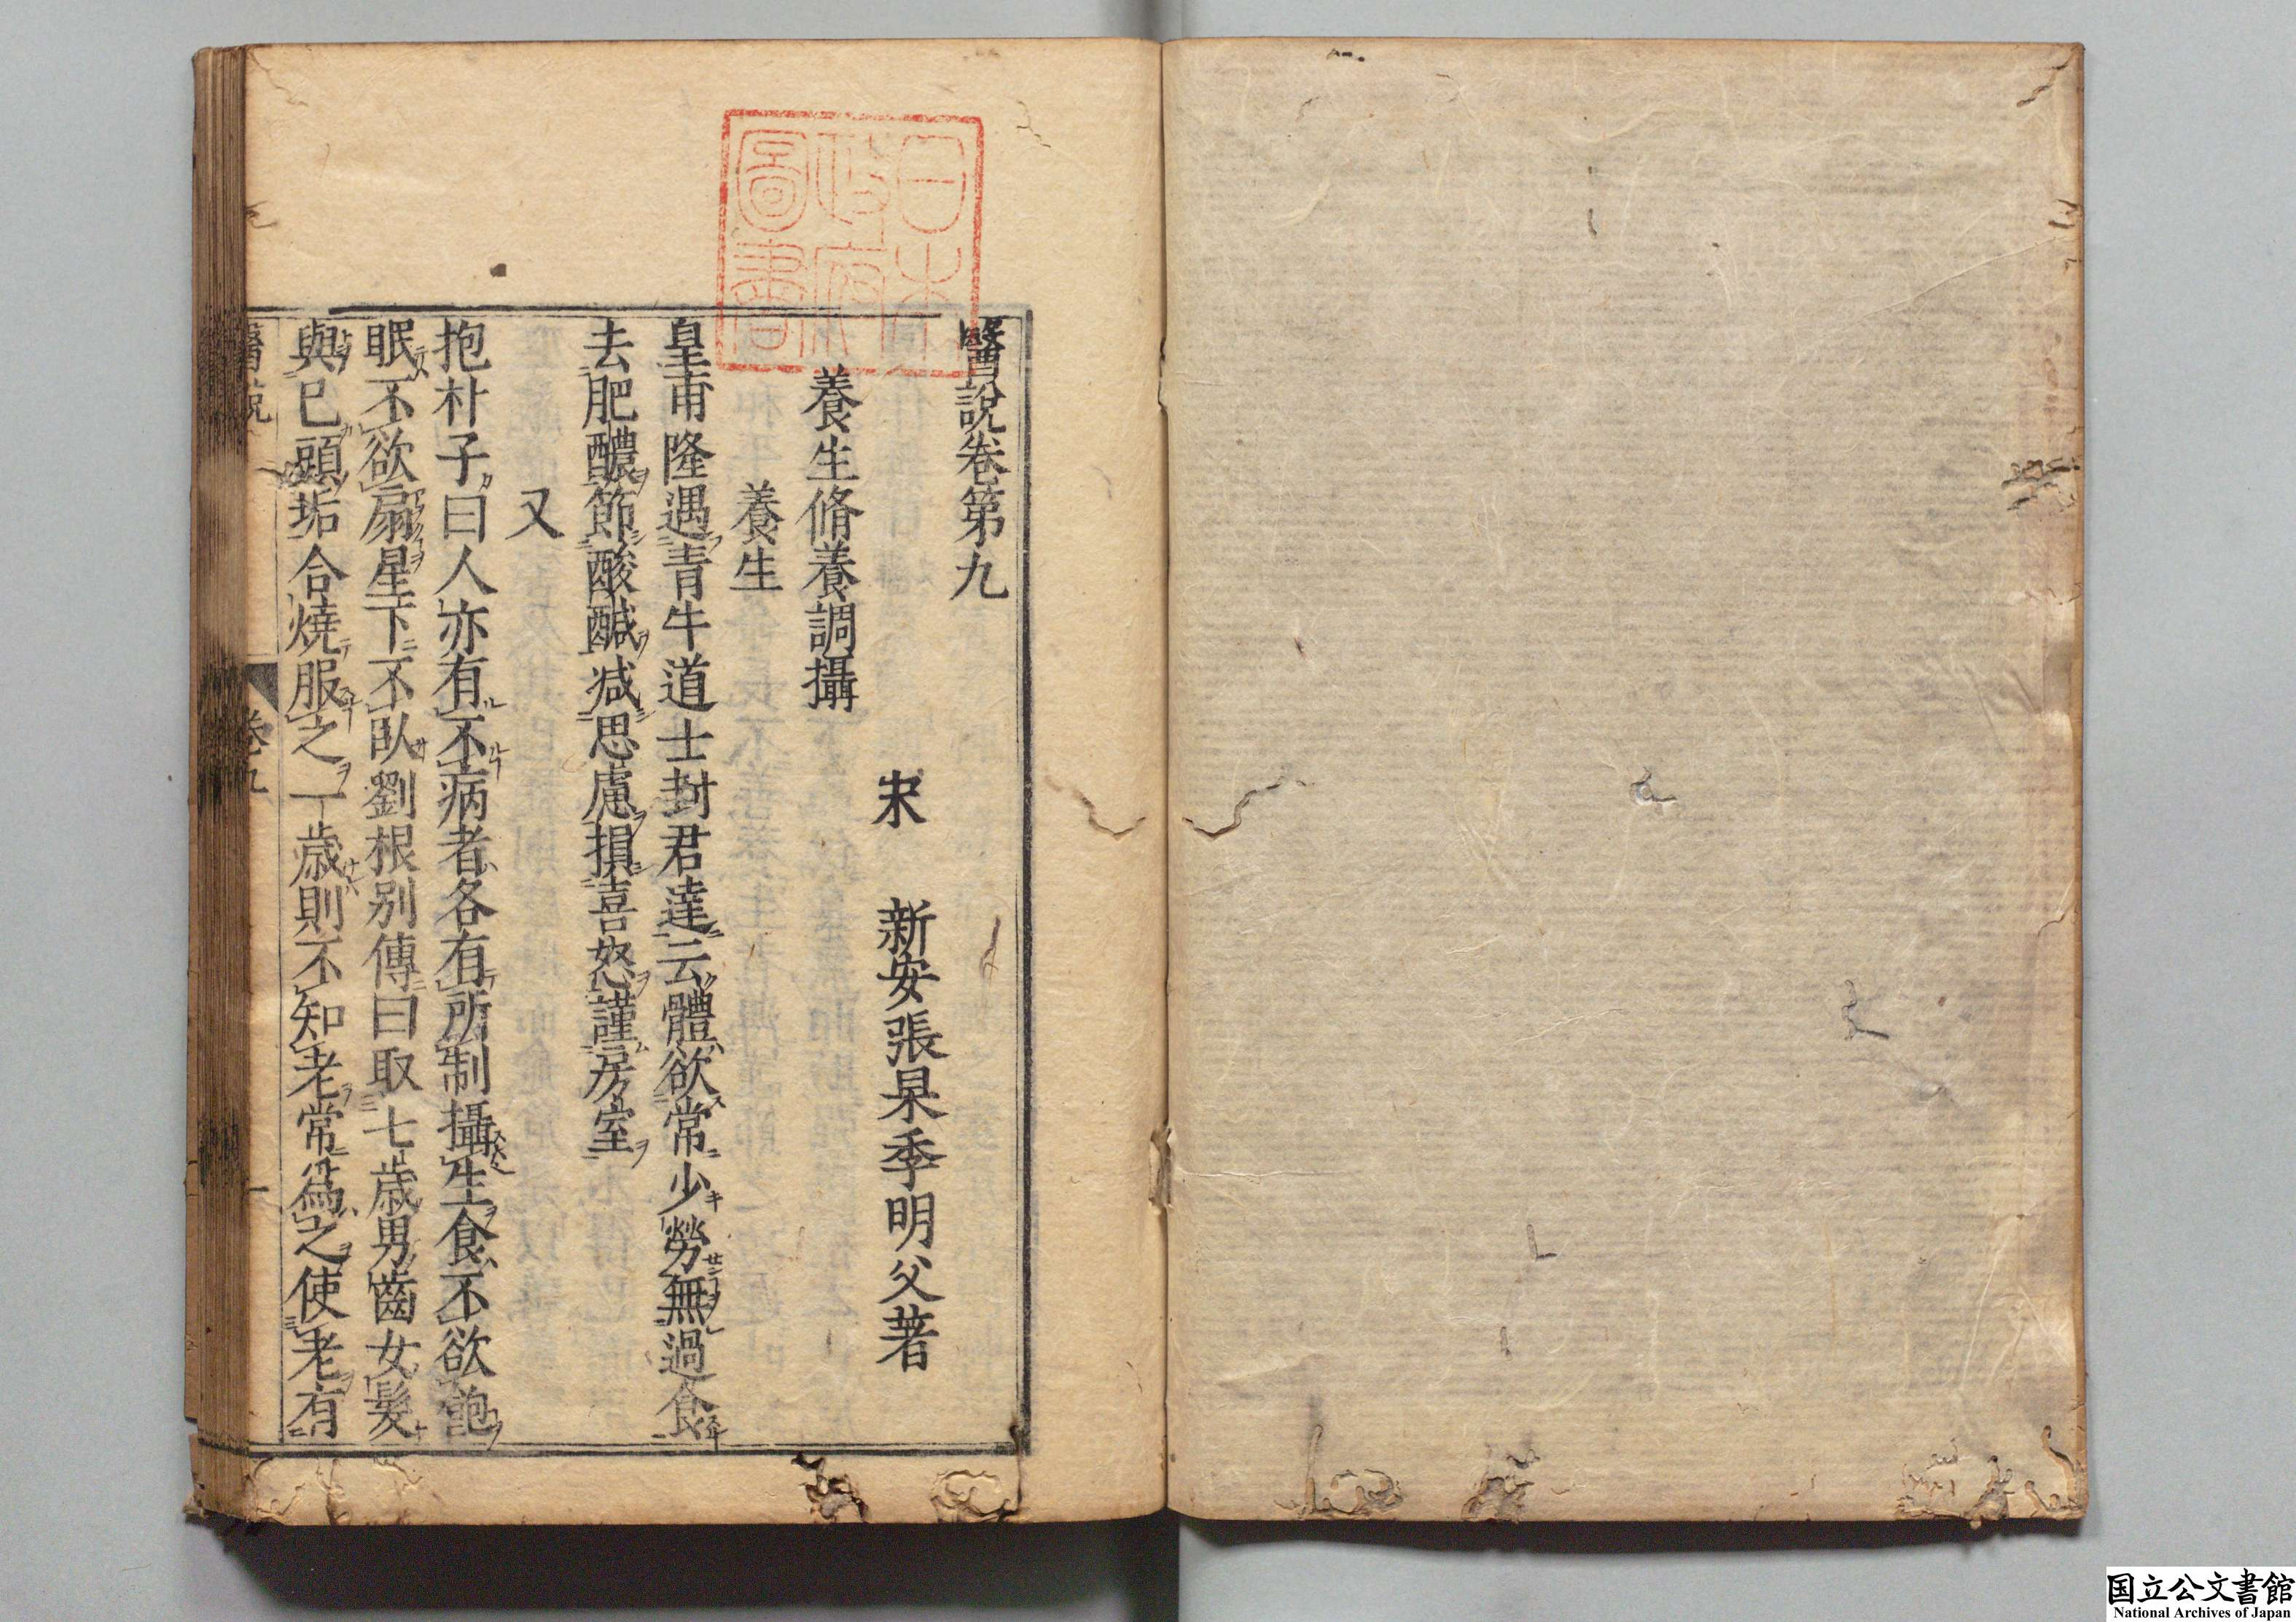 醫說卷第九
宋　新安張杲季明父著
養生脩養調攝
養生
皇甫隆遇青牛道士封君達云體欲常少勞無過食
去肥醲節酸醎減思慮損喜怒謹房室
又
抱朴子曰人亦有不病者各有所制攝生食不欲飽
眠不欲扇星下不臥劉根别傳曰取七歲男齒女髮
與已頭垢合燒服之一歲則不知老常爲之使老有
醫說
卷九
一
日本
政府
圖書
国立公文書館
National Archives of Japan